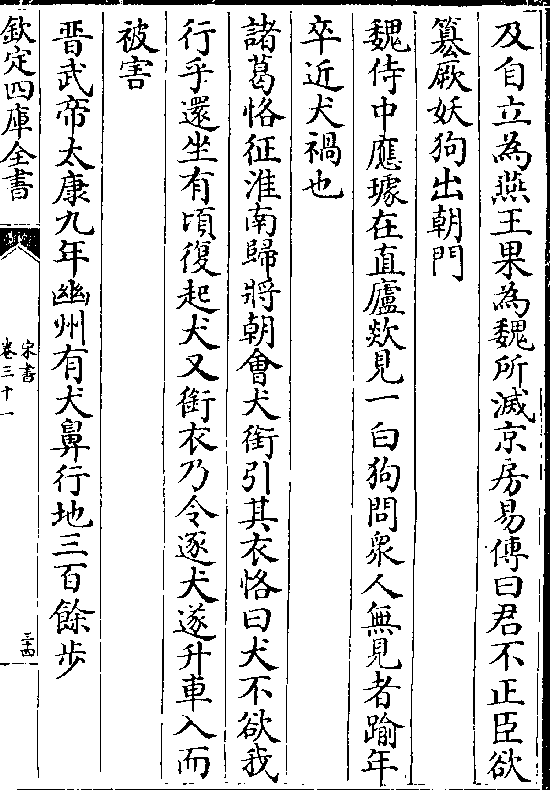 及自立為燕王果為魏所滅京房易傳曰君不正臣欲
簒厥妖狗出朝門
魏侍中應璩在直廬欻見一白狗問衆人無見者踰年
卒近犬禍也
諸葛恪征淮南歸將朝㑹犬銜引其衣恪曰犬不欲我
行乎還坐有頃復起犬又銜衣乃令逐犬遂升車入而
被害
晋武帝太康九年幽州有犬鼻行地三百餘步
欽定四庫全書
宋書
卷三十一
三十四